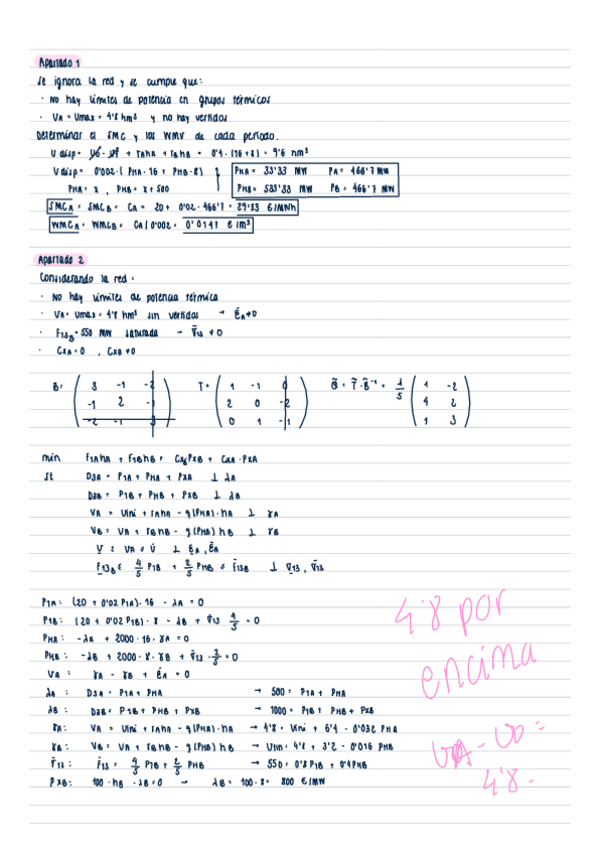 Apartado 1
Se ignora la red y se cumple que:
· No hay límites de potencia en grupos térmicos
· VA = Vmax = 4'8 hm³ y no hay vertidos
Determinar el SMC y los WMV de cada período.
Vdisp = V0 - Vf + rAhA + rBhB = 0'4 · (16+8) = 9'6 hm³
Vdisp = 0'002 · (PHA · 16 + PHB · 8)
PHA = x , PHB = x + 500
PHA = 33'33 MW PA = 466'7 MW
PHB = 533'33 MW PB = 466'7 MW
SMCA = SMCB = CA = 20 + 0'02 · 466'7 = 29'33 €/MWh
WMCA = WMCB = CA / 0'002 = 0'0147 €/m³
Apartado 2
Considerando la red:
· No hay límites de potencia térmica
· VA = Vmax = 4'8 hm³ sin vertidos → ε̄A ≠ 0
· F13B = 550 MW saturada → σ̄13 ≠ 0
· CXA = 0 , CXB ≠ 0
B = ( 3 -1 -2
-1 2 -1
-2 -1 3 )
T = ( 1 -1 0
2 0 -2
0 1 -1 )
= T̃ · B̃⁻¹ = 1/5 ( 1 -2
4 2
1 3 )
min F1AhA + F1BhB + CXBPXB + CXA · PXA
st D3A = P1A + PHA + PXA ⊥ λA
D2B = P1B + PHB + PXB ⊥ λB
VA = Vini + rAhA - q(PHA) · hA ⊥ γA
VB = VA + rBhB - q(PHB) hB ⊥ γB
V ≤ VA ≤ V̄ ⊥ ε̲A, ε̄A
F13B ≤ 4/5 P1B + 2/5 PHB ≤ F̄13B ⊥ σ̲13, σ̄13
P1A: (20 + 0'02 P1A) · 16 - λA = 0
P1B: (20 + 0'02 P1B) · 8 - λB + σ̄13 4/5 = 0
PHA: -λA + 2000 · 16 · γA = 0
PHB: -λB + 2000 · 8 · γB + σ̄13 · 2/5 = 0
VA: γA - γB + ε̄A = 0
λA: D3A = P1A + PHA → 500 = P1A + PHA
λB: D2B = P1B + PHB + PXB → 1000 = P1B + PHB + PXB
γA: VA = Vini + rAhA - q(PHA) · hA → 4'8 = Vini + 6'4 - 0'032 PHA
γB: VB = VA + rBhB - q(PHB) hB → Vfin = 4'8 + 3'2 - 0'016 PHB
F̄13: F̄13 = 4/5 P1B + 2/5 PHB → 550 = 0'8 P1B + 0'4PHB
PXB: 100 · hB - λB = 0 → λB = 100 · 8 = 800 €/MW
4'8 por
encima
VA - V0 =
4'8 -